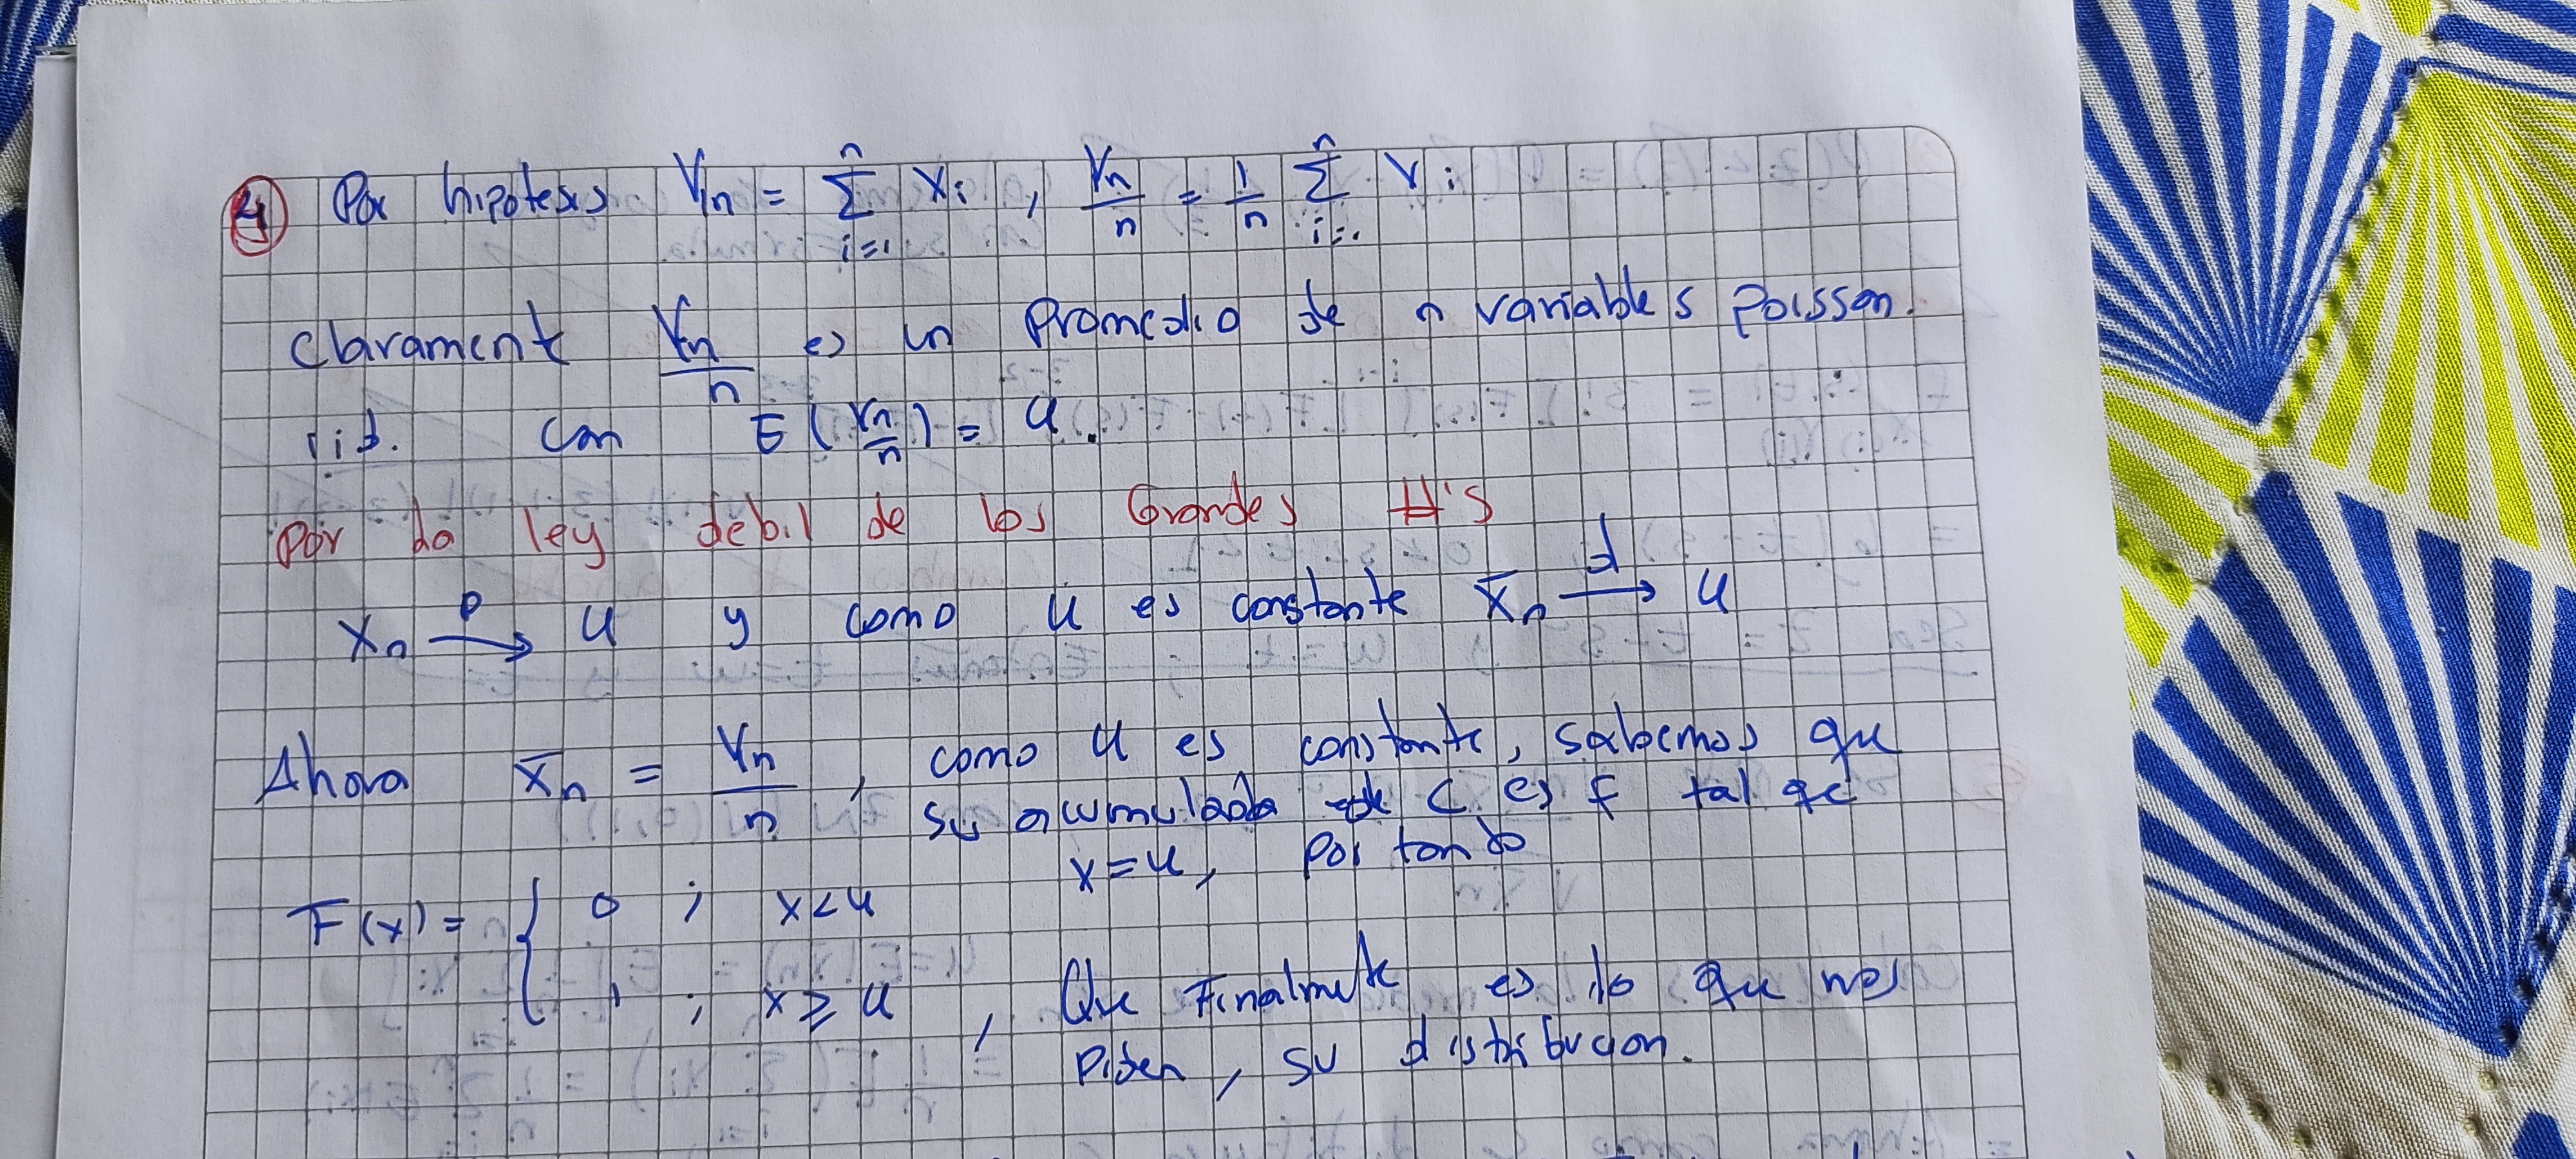 4 Por hipotesis Yn = n Σ i=1 Xi , Yn/n = 1/n n Σ i=1 Yi
Claramente Yn/n es un Promedio de n variables Poisson.
iid. Con E(Yn/n) = u.
Por la ley debil de los Grandes #'s
Xn →p u y como u es constante X̄n →d u
Ahora X̄n = Yn/n , como u es constante, sabemos que
su acumulada C es F tal qe
x=u, Por tando
F(x) = { 0 ; x<u
1 ; x ≥ u , Que Finalmente es lo que nos
Piden, su distribucion.